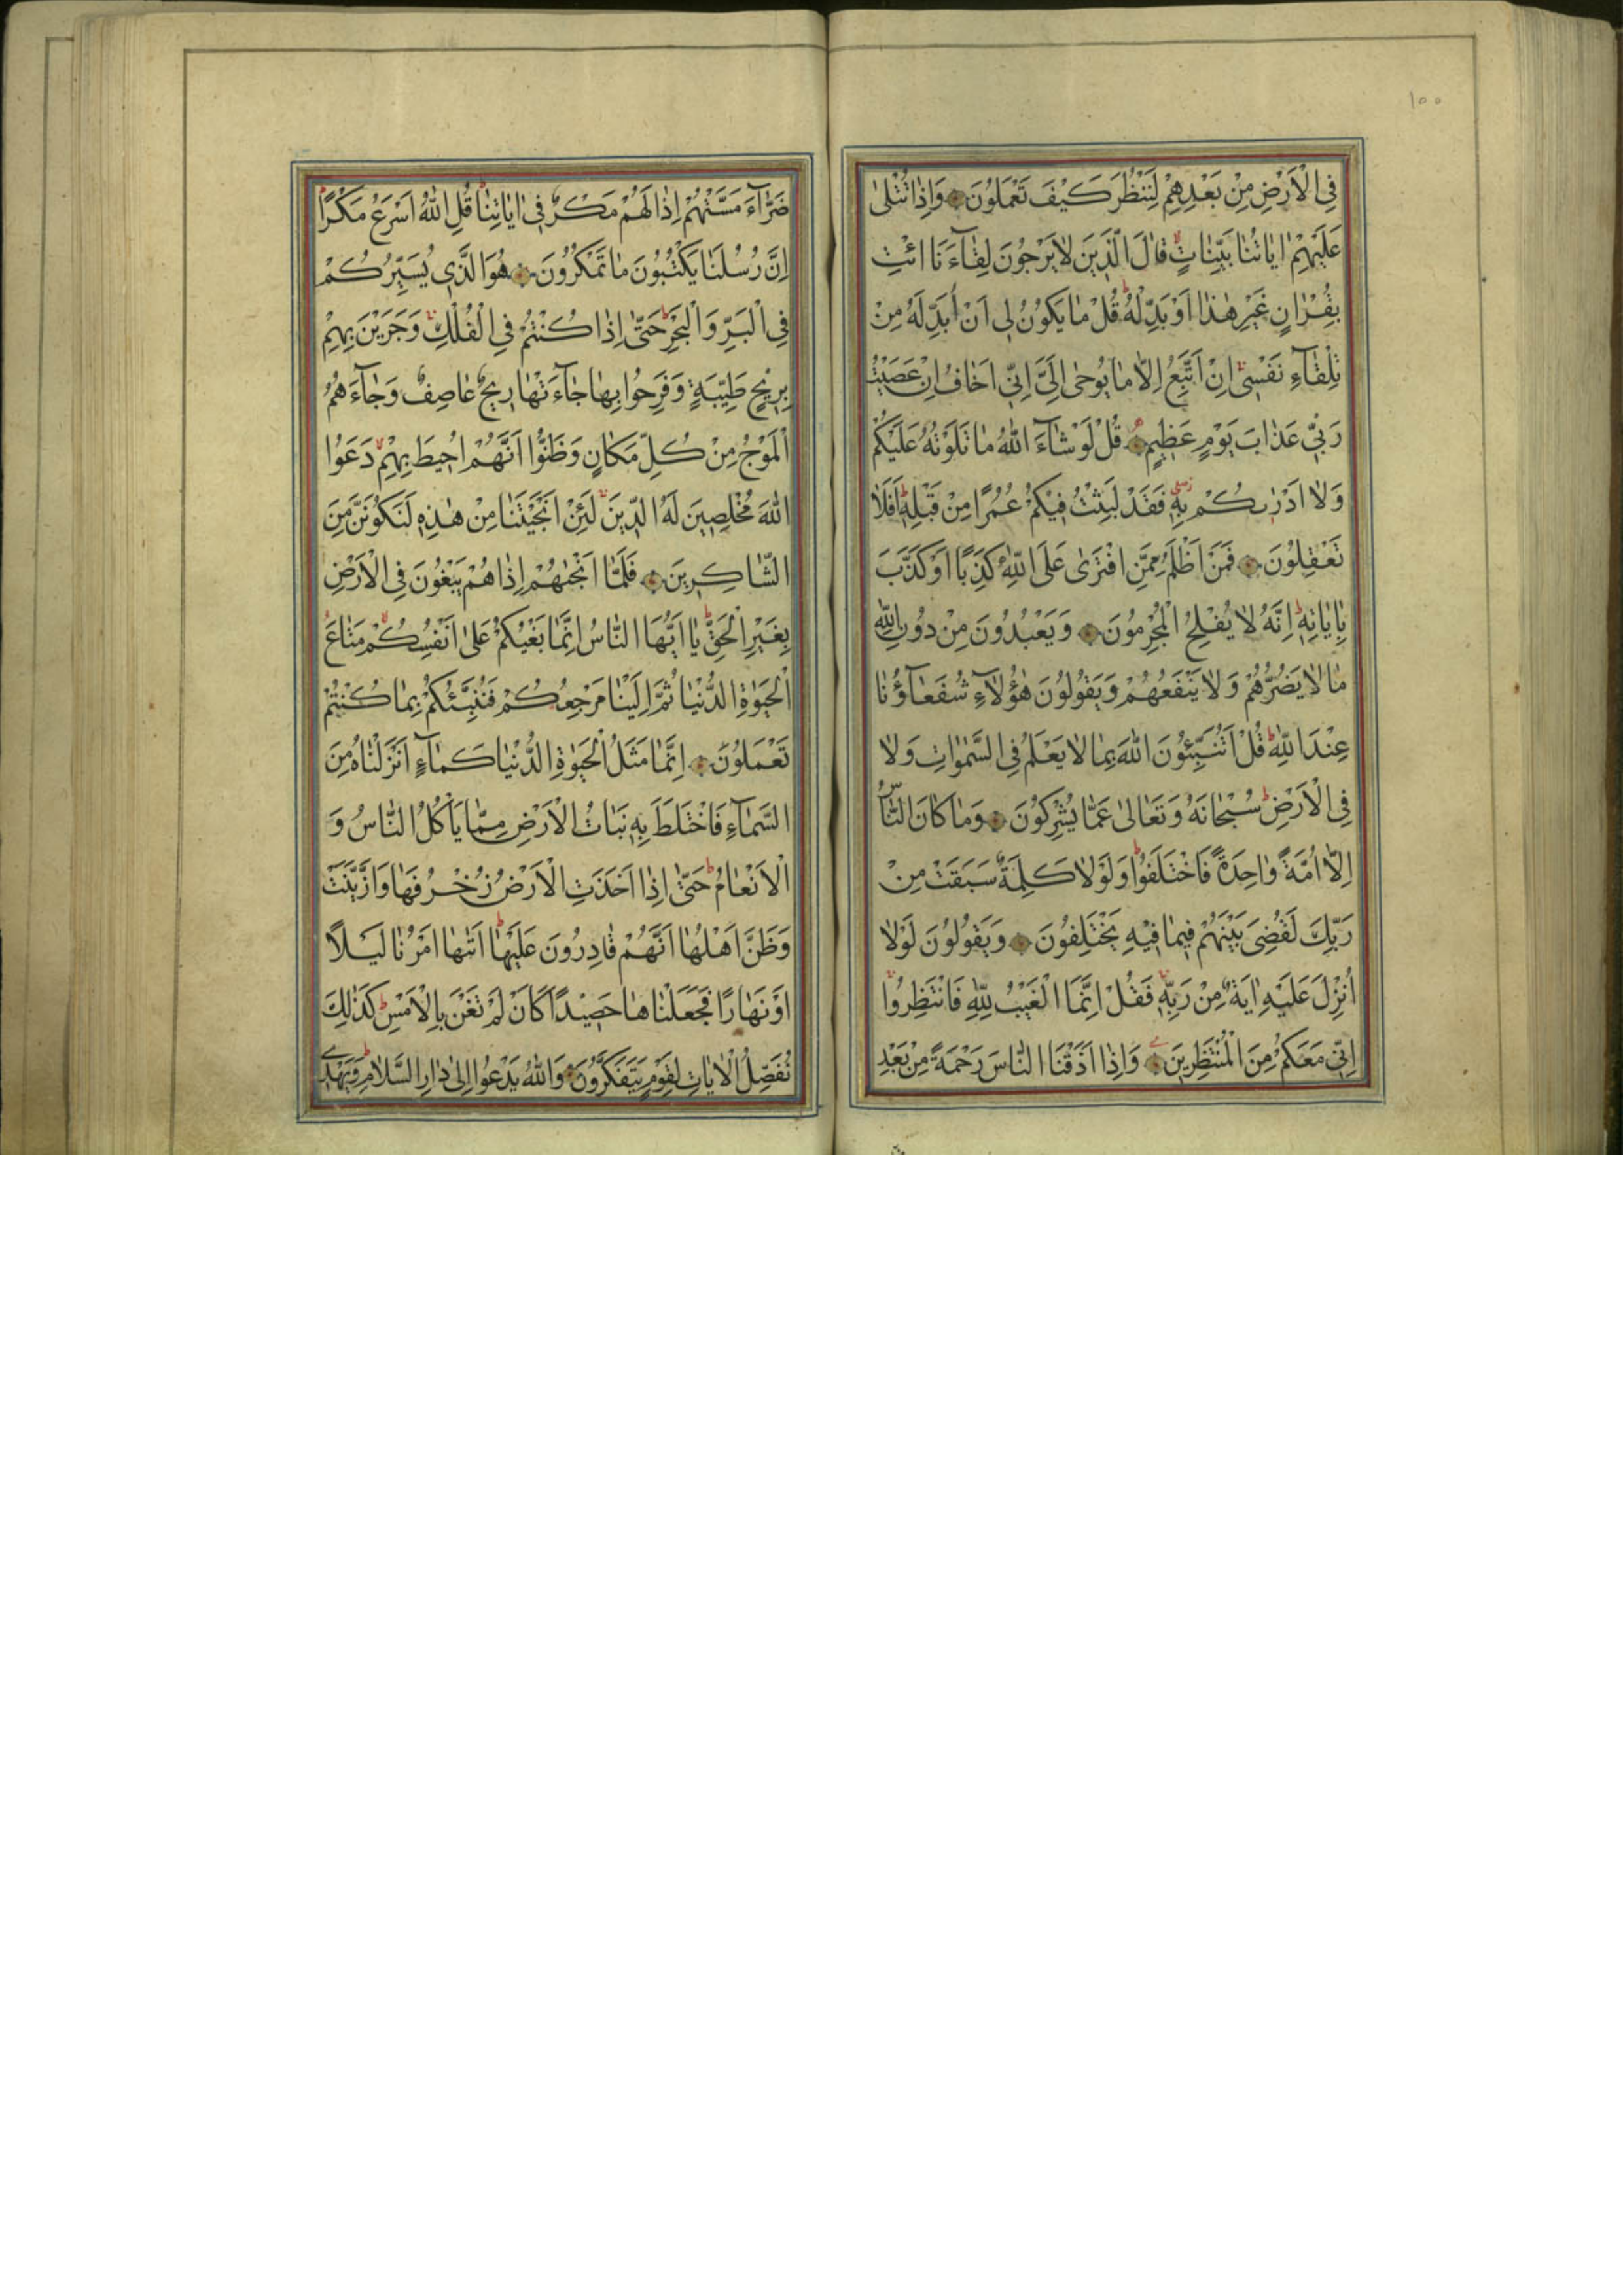 ١٠٠
فِي الْاَرْضِ مِنْ بَعْدِهِمْ لِنَنْظُرَ كَيْفَ تَعْمَلُونَ وَاِذَا تُتْلٰى
عَلَيْهِمْ اٰيَاتُنَا بَيِّنَاتٍ قَالَ الَّذٖينَ لَا يَرْجُونَ لِقَٓاءَنَا ائْتِ
بِقُرْاٰنٍ غَيْرِ هٰذَا اَوْ بَدِّلْهُ قُلْ مَا يَكُونُ لٖى اَنْ اُبَدِّلَهُ مِنْ
تِلْقَٓاءِ نَفْسٖى اِنْ اَتَّبِعُ اِلَّا مَا يُوحٰى اِلَىَّ اِنّٖى اَخَافُ اِنْ عَصَيْتُ
رَبّٖى عَذَابَ يَوْمٍ عَظٖيمٍ قُلْ لَوْ شَٓاءَ اللّٰهُ مَا تَلَوْتُهُ عَلَيْكُمْ
وَلَا اَدْرٰيكُمْ بِهٖ فَقَدْ لَبِثْتُ فٖيكُمْ عُمُرًا مِنْ قَبْلِهٖ اَفَلَا
تَعْقِلُونَ فَمَنْ اَظْلَمُ مِمَّنِ افْتَرٰى عَلَى اللّٰهِ كَذِبًا اَوْ كَذَّبَ
بِاٰيَاتِهٖ اِنَّهُ لَا يُفْلِحُ الْمُجْرِمُونَ وَيَعْبُدُونَ مِنْ دُونِ اللّٰهِ
مَا لَا يَضُرُّهُمْ وَلَا يَنْفَعُهُمْ وَيَقُولُونَ هٰٓؤُلَٓاءِ شُفَعَٓاؤُنَا
عِنْدَ اللّٰهِ قُلْ اَتُنَبِّئُونَ اللّٰهَ بِمَا لَا يَعْلَمُ فِي السَّمٰوَاتِ وَلَا
فِي الْاَرْضِ سُبْحَانَهُ وَتَعَالٰى عَمَّا يُشْرِكُونَ وَمَا كَانَ النَّاسُ
اِلَّا اُمَّةً وَاحِدَةً فَاخْتَلَفُوا وَلَوْلَا كَلِمَةٌ سَبَقَتْ مِنْ
رَبِّكَ لَقُضِىَ بَيْنَهُمْ فٖيمَا فٖيهِ يَخْتَلِفُونَ وَيَقُولُونَ لَوْلَا
اُنْزِلَ عَلَيْهِ اٰيَةٌ مِنْ رَبِّهٖ فَقُلْ اِنَّمَا الْغَيْبُ لِلّٰهِ فَانْتَظِرُوا
اِنّٖى مَعَكُمْ مِنَ الْمُنْتَظِرٖينَ وَاِذَا اَذَقْنَا النَّاسَ رَحْمَةً مِنْ بَعْدِ
ضَرَّٓاءَ مَسَّتْهُمْ اِذَا لَهُمْ مَكْرٌ فٖى اٰيَاتِنَا قُلِ اللّٰهُ اَسْرَعُ مَكْرًا
اِنَّ رُسُلَنَا يَكْتُبُونَ مَا تَمْكُرُونَ هُوَ الَّذٖى يُسَيِّرُكُمْ
فِي الْبَرِّ وَالْبَحْرِ حَتّٰى اِذَا كُنْتُمْ فِي الْفُلْكِ وَجَرَيْنَ بِهِمْ
بِرٖيحٍ طَيِّبَةٍ وَفَرِحُوا بِهَا جَٓاءَتْهَا رٖيحٌ عَاصِفٌ وَجَٓاءَهُمُ
الْمَوْجُ مِنْ كُلِّ مَكَانٍ وَظَنُّوا اَنَّهُمْ اُحٖيطَ بِهِمْ دَعَوُا
اللّٰهَ مُخْلِصٖينَ لَهُ الدّٖينَ لَئِنْ اَنْجَيْتَنَا مِنْ هٰذِهٖ لَنَكُونَنَّ مِنَ
الشَّاكِرٖينَ فَلَمَّا اَنْجٰيهُمْ اِذَا هُمْ يَبْغُونَ فِي الْاَرْضِ
بِغَيْرِ الْحَقِّ يَا اَيُّهَا النَّاسُ اِنَّمَا بَغْيُكُمْ عَلٰى اَنْفُسِكُمْ مَتَاعَ
الْحَيٰوةِ الدُّنْيَا ثُمَّ اِلَيْنَا مَرْجِعُكُمْ فَنُنَبِّئُكُمْ بِمَا كُنْتُمْ
تَعْمَلُونَ اِنَّمَا مَثَلُ الْحَيٰوةِ الدُّنْيَا كَمَٓاءٍ اَنْزَلْنَاهُ مِنَ
السَّمَٓاءِ فَاخْتَلَطَ بِهٖ نَبَاتُ الْاَرْضِ مِمَّا يَاْكُلُ النَّاسُ وَ
الْاَنْعَامُ حَتّٰى اِذَا اَخَذَتِ الْاَرْضُ زُخْرُفَهَا وَازَّيَّنَتْ
وَظَنَّ اَهْلُهَا اَنَّهُمْ قَادِرُونَ عَلَيْهَا اَتٰيهَا اَمْرُنَا لَيْلًا
اَوْ نَهَارًا فَجَعَلْنَاهَا حَصٖيدًا كَاَنْ لَمْ تَغْنَ بِالْاَمْسِ كَذٰلِكَ
نُفَصِّلُ الْاٰيَاتِ لِقَوْمٍ يَتَفَكَّرُونَ وَاللّٰهُ يَدْعُوا اِلٰى دَارِ السَّلَامِ وَيَهْدٖى